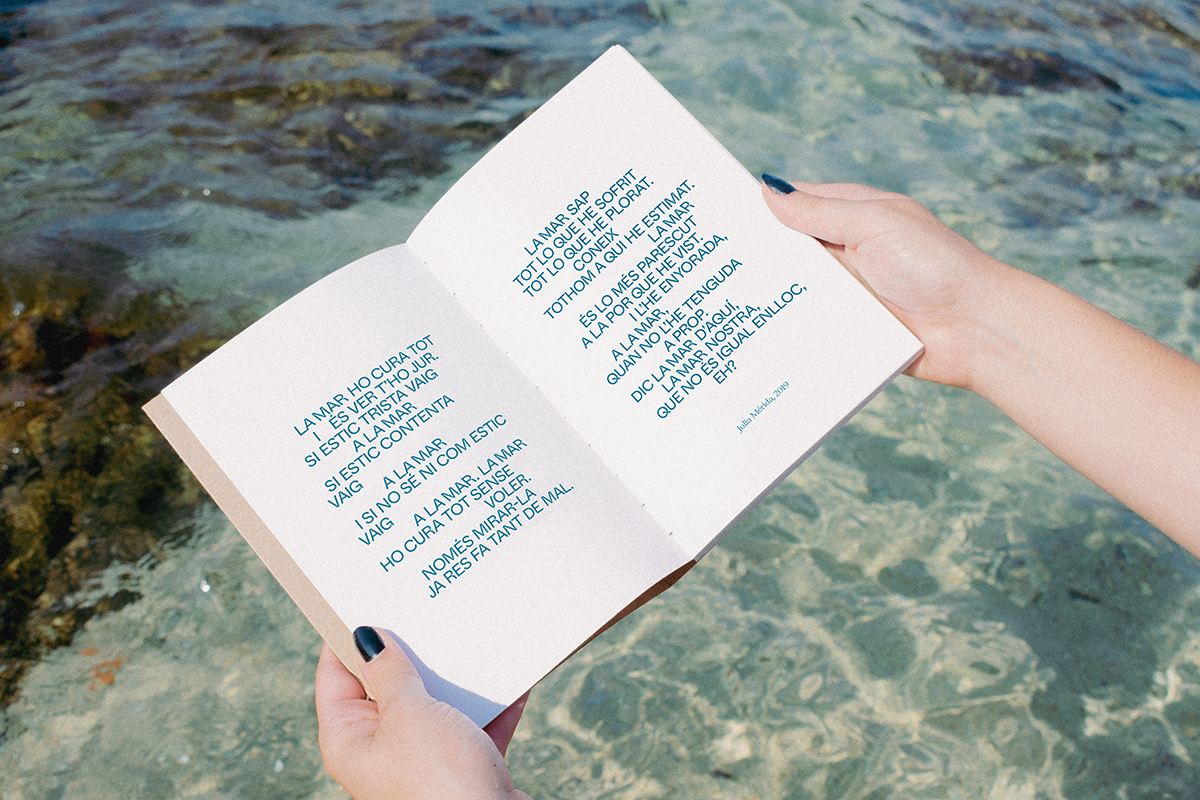 LA MAR HO CURA TOT
I ÉS VER T'HO JUR.
SI ESTIC TRISTA VAIG
A LA MAR
SI ESTIC CONTENTA
VAIG A LA MAR
I SI NO SÉ NI COM ESTIC
VAIG A LA MAR. LA MAR
HO CURA TOT SENSE
VOLER.
NOMÉS MIRAR-LA
JA RES FA TANT DE MAL.
LA MAR SAP
TOT LO QUE HE SOFRIT
TOT LO QUE HE PLORAT.
CONEIX
TOTHOM A QUI HE ESTIMAT.
LA MAR
ÉS LO MÉS PARESCUT
A LA POR QUE HE VIST.
I L'HE ENYORADA,
A LA MAR,
QUAN NO L'HE TENGUDA
A PROP.
DIC LA MAR D'AQUÍ,
LA MAR NOSTRA,
QUE NO ÉS IGUAL ENLLOC,
EH?
Julia Mérida, 2019